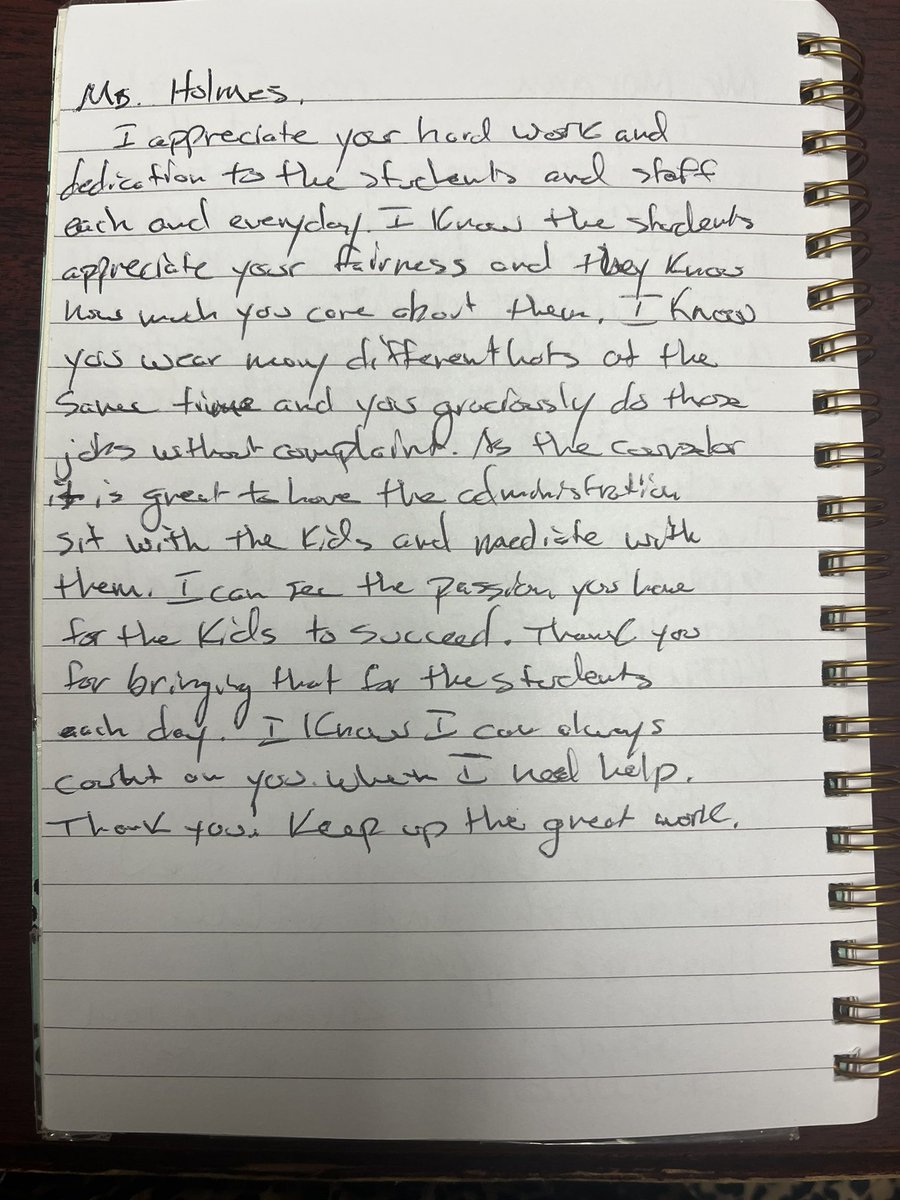 Ms. Holmes,
I appreciate your hard work and
dedication to the students and staff
each and everyday. I know the students
appreciate your fairness and they know
how much you care about them. I know
you wear many different hats at the
same time and you graciously do those
jobs without complaint. As the counselor
it is great to have the administration
sit with the kids and mediate with
them. I can see the passion you have
for the kids to succeed. Thank you
for bringing that for the students
each day. I know I can always
count on you when I need help.
Thank you! Keep up the great work.